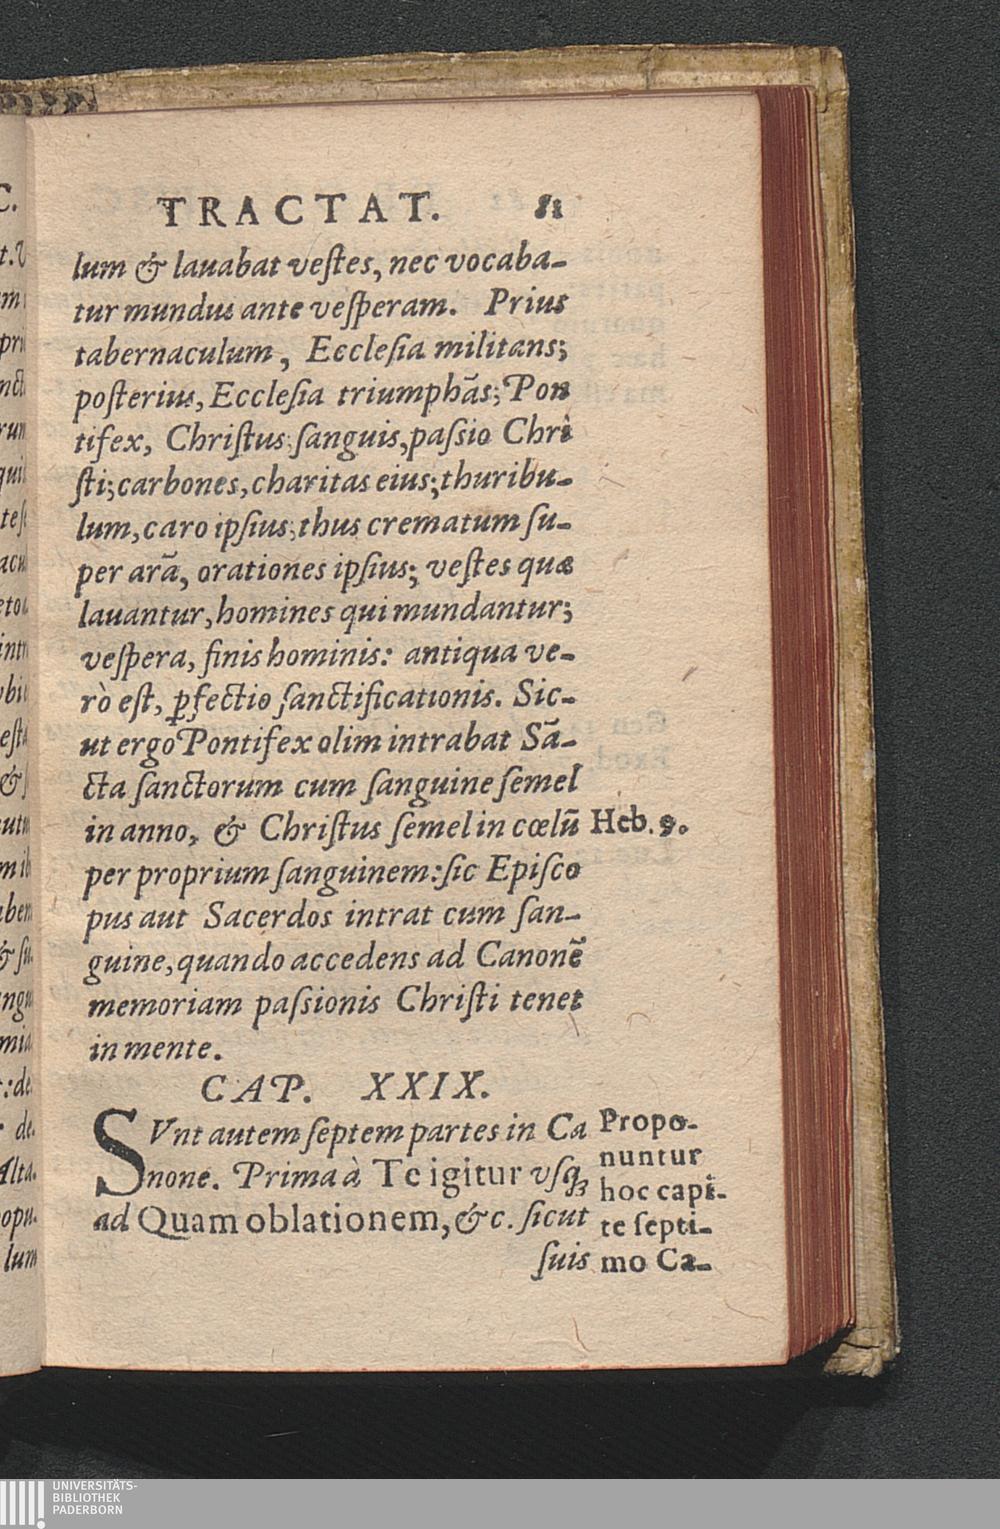 TRACTAT. 81
lum & lauabat veſtes, nec vocaba-
tur mundus ante veſperam. Prius
tabernaculum, Eccleſia militans;
poſterius, Eccleſia triumphãs; Pon
tifex, Chriſtus; ſanguis, paſsio Chri
ſti; carbones, charitas eius; thuribu-
lum, caro ipſius; thus crematum ſu-
per arã, orationes ipſius; veſtes quæ
lauantur, homines qui mundantur;
veſpera, finis hominis: antiqua ve-
rò eſt, ꝑfectio ſanctificationis. Sic-
ut ergo Pontifex olim intrabat Sã-
cta ſanctorum cum ſanguine ſemel
in anno, & Chriſtus ſemel in cœlũ
Heb. 9.
per proprium ſanguinem: ſic Epiſco
pus aut Sacerdos intrat cum ſan-
guine, quando accedens ad Canonẽ
memoriam paſsionis Chriſti tenet
in mente.
CAP. XXIX.
SVnt autem ſeptem partes in Ca
none. Prima à Te igitur vſq́ꝫ
ad Quam oblationem, &c. ſicut
ſuis
Propo-
nuntur
hoc capi-
te ſepti-
mo Ca-
C.
lum
UNIVERSITÄTS-
BIBLIOTHEK
PADERBORN